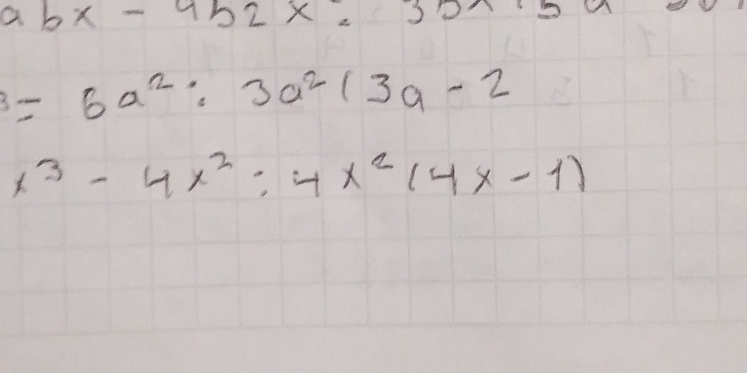 abx - 9b2x : 3bx
3= 6a² : 3a² (3a - 2
x³ - 4x² : 4x² (4x - 1)